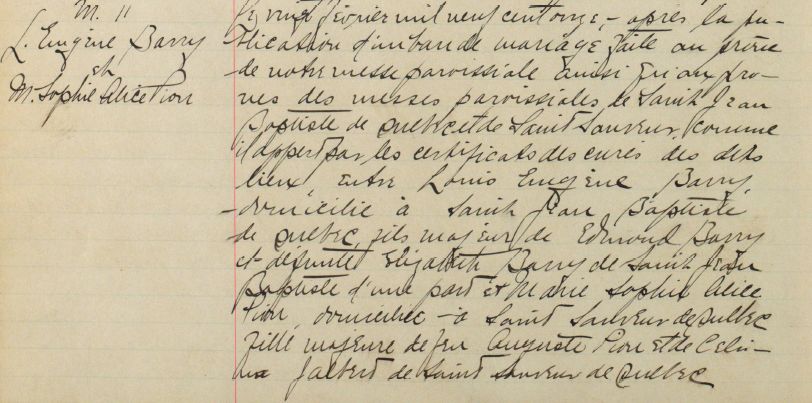 M. 11
L. Eugène Barry
et
M. Sophie Alice Pion
Le vingt février mil neuf cent onze, - après la pu-
blication d'un ban de mariage faite au prône
de notre messe paroissiale ainsi qu'aux prô-
nes des messes paroissiales de Saint Jean
Baptiste de Québec et de Saint Sauveur, comme
il appert par les certificats des curés des dits
lieux, entre Louis Eugène Barry,
- domicilié à Saint Jean Baptiste
de Québec, fils majeur de Edmond Barry
et défunte Elizabeth Barry de Saint Jean
Baptiste d'une part et Marie Sophie Alice
Pion, domiciliée - à Saint Sauveur de Québec
fille majeure de feu Auguste Pion et de Céli-
na Jalbert de Saint Sauveur de Québec